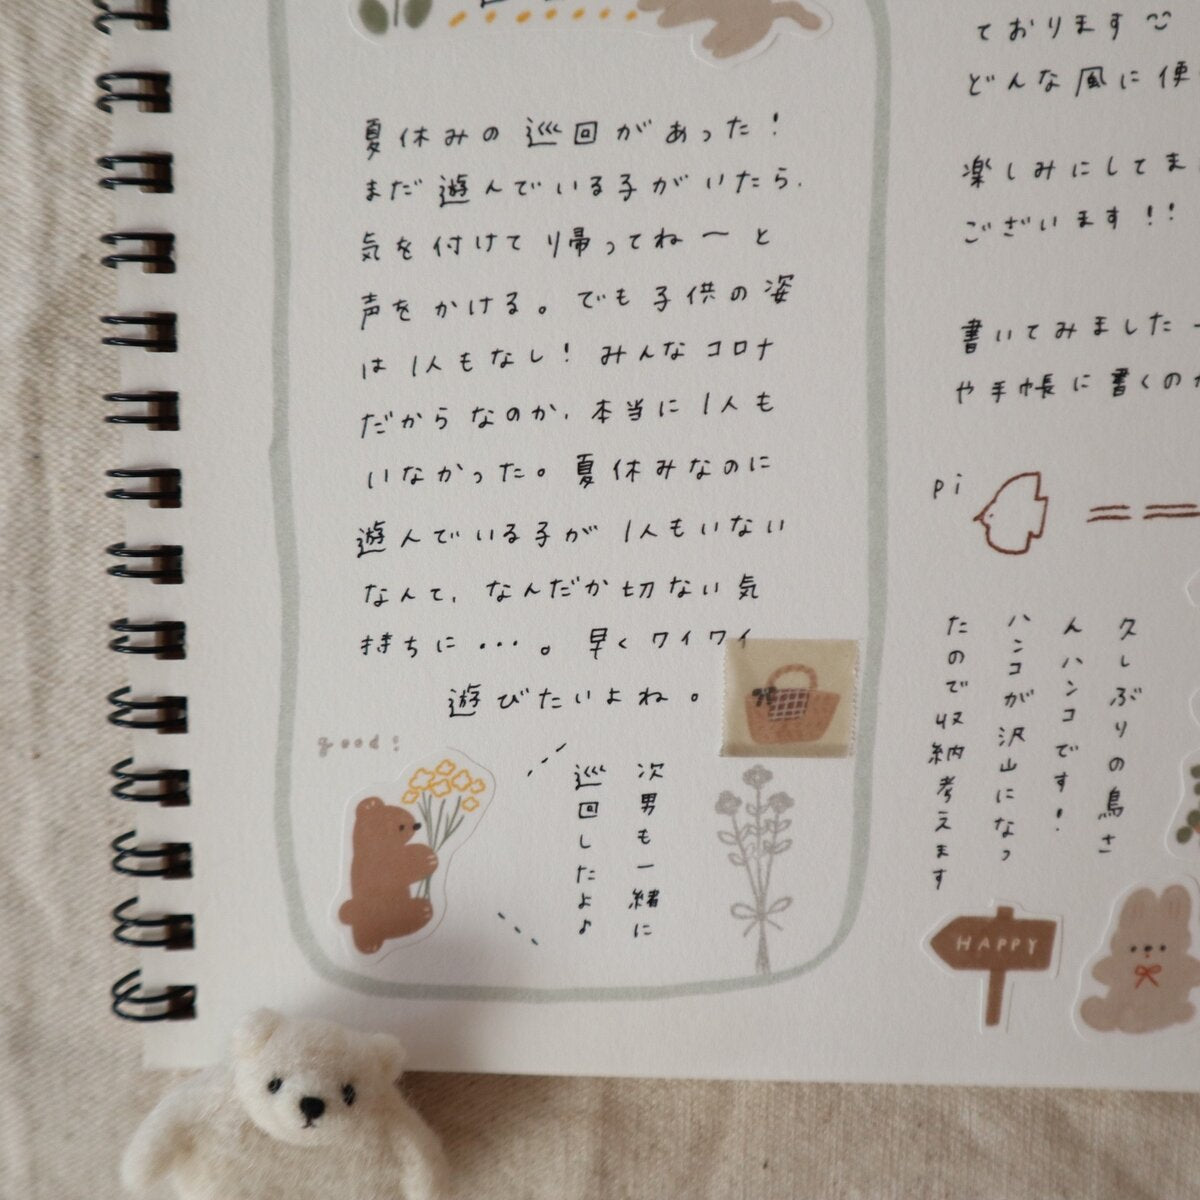 夏休みの巡回があった!
まだ遊んでいる子がいたら、
気を付けて帰ってね〜と
声をかける。でも子供の姿
は1人もなし! みんなコロナ
だからなのか、本当に1人も
いなかった。夏休みなのに
遊んでいる子が1人もいない
なんて、なんだか切ない気
持ちに・・・。早くワイワイ
遊びたいよね。
good!
次男も一緒に
巡回したよ♪
ております
どんな風に便
楽しみにしてま
ございます!!
書いてみました
や手帳に書くのか
pi
久しぶりの鳥さ
んハンコです!
ハンコが沢山になっ
たので収納考えます
HAPPY